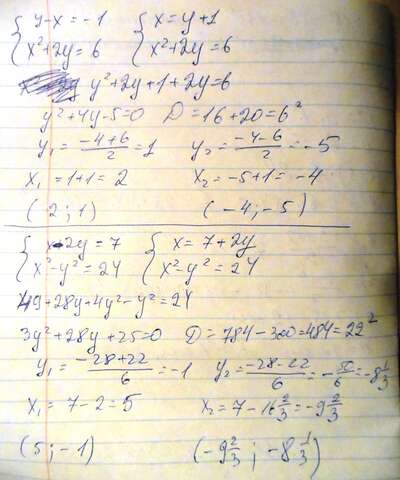 { y-x=-1 { x=y+1
x²+2y=6 x²+2y=6
y²+2y+1+2y=6
y²+4y-5=0 D=16+20=6²
y₁=(-4+6)/2=1 y₂=(-4-6)/2=-5
x₁=1+1=2 x₂=-5+1=-4
(2;1) (-4;-5)
{ x-2y=7 { x=7+2y
x²-y²=24 x²-y²=24
49+28y+4y²-y²=24
3y²+28y+25=0 D=784-300=484=22²
y₁=(-28+22)/6=-1 y₂=(-28-22)/6=-50/6=-8 1/3
x₁=7-2=5 x₂=7-16 2/3=-9 2/3
(5;-1) (-9 2/3; -8 1/3)